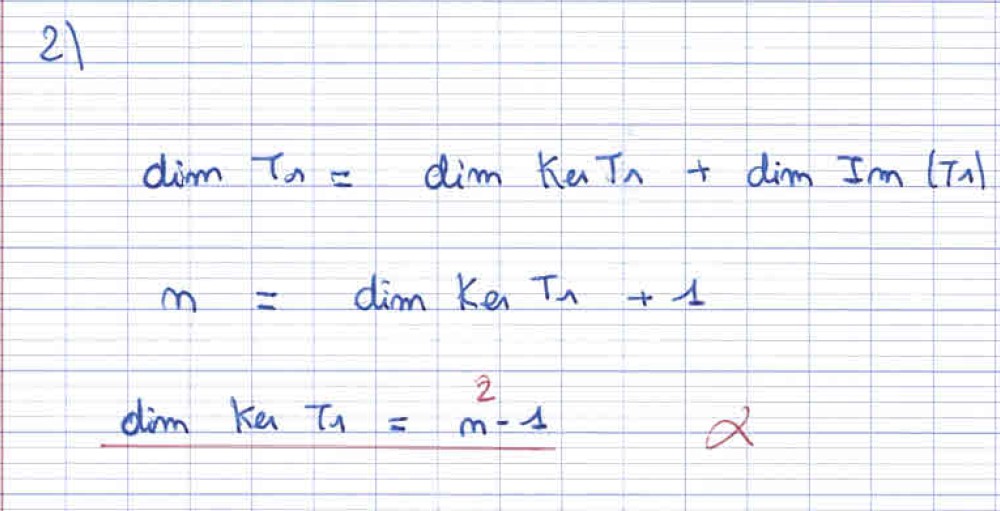 2)
dim T1 = dim Ker T1 + dim Im (T1)
n = dim Ker T1 + 1
dim Ker T1 = n² - 1